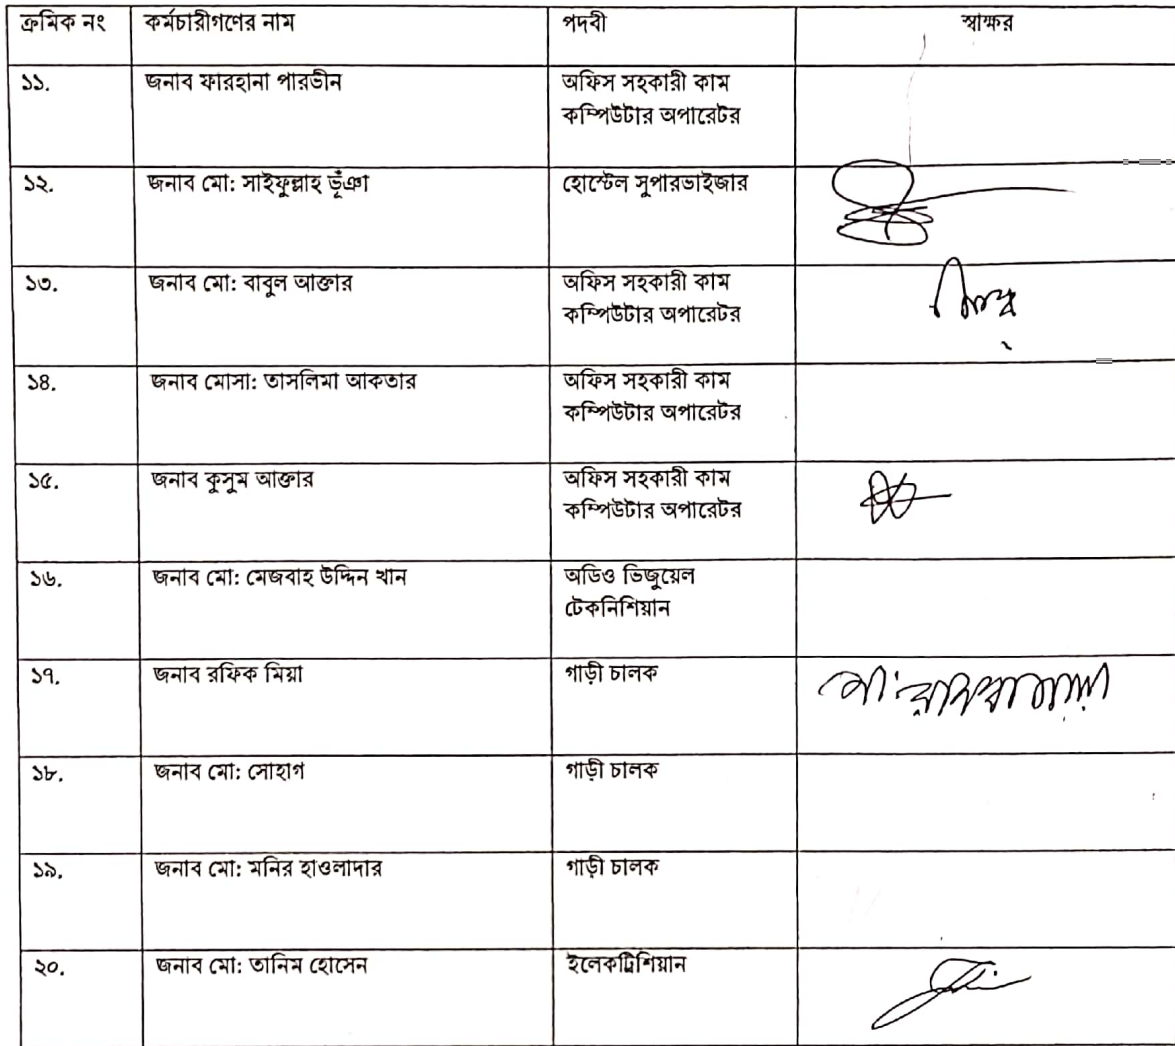 ক্রমিক নং কর্মচারীগণের নাম পদবী স্বাক্ষর
১১. জনাব ফারহানা পারভীন অফিস সহকারী কাম
কম্পিউটার অপারেটর
১২. জনাব মো: সাইফুল্লাহ ভূঁঞা হোস্টেল সুপারভাইজার
১৩. জনাব মো: বাবুল আক্তার অফিস সহকারী কাম
কম্পিউটার অপারেটর
১৪. জনাব মোসা: তাসলিমা আকতার অফিস সহকারী কাম
কম্পিউটার অপারেটর
১৫. জনাব কুসুম আক্তার অফিস সহকারী কাম
কম্পিউটার অপারেটর
১৬. জনাব মো: মেজবাহ উদ্দিন খান অডিও ভিজুয়েল
টেকনিশিয়ান
১৭. জনাব রফিক মিয়া গাড়ী চালক
১৮. জনাব মো: সোহাগ গাড়ী চালক
১৯. জনাব মো: মনির হাওলাদার গাড়ী চালক
২০. জনাব মো: তানিম হোসেন ইলেকট্রিশিয়ান